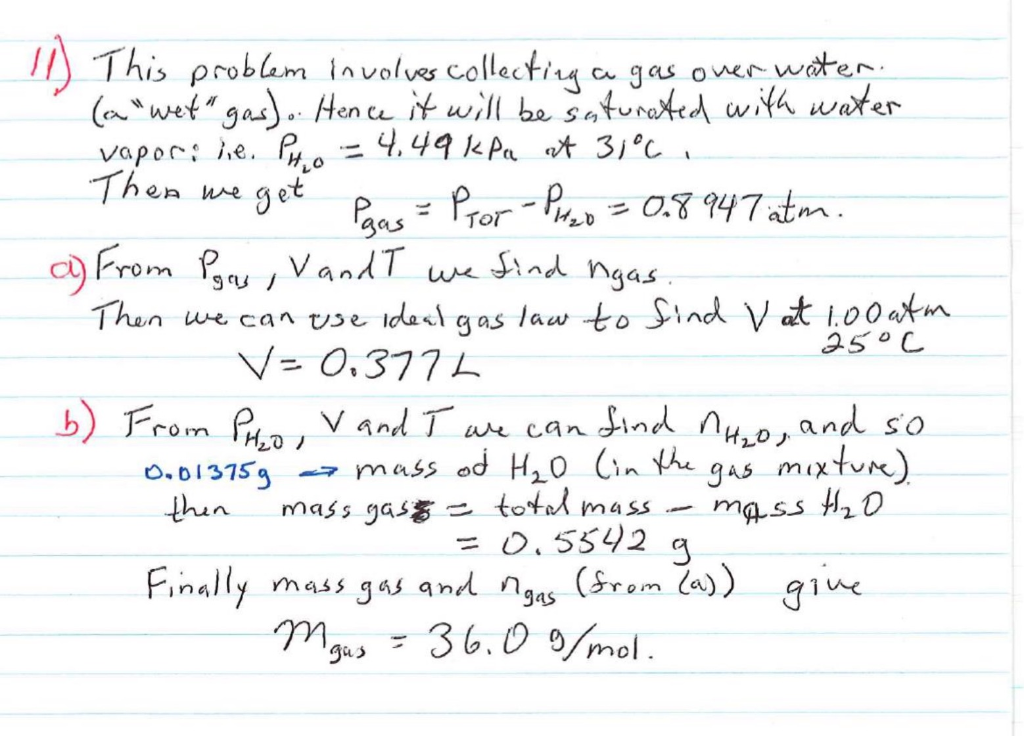 11) This problem involves collecting a gas over water.
(a "wet" gas). Hence it will be saturated with water
vapor: i.e. P_H₂O = 4.49 kPa at 31°C.
Then we get P_gas = P_TOT - P_H₂O = 0.8947 atm.
a) From P_gas, V and T we find n_gas.
Then we can use ideal gas law to find V at 1.00 atm
25°C
V = 0.377 L
b) From P_H₂O, V and T we can find n_H₂O, and so
0.01375g → mass od H₂O (in the gas mixture).
then mass gas = total mass - mass H₂O
= 0.5542 g
Finally mass gas and n_gas (from (a)) give
M_gas = 36.0 g/mol.